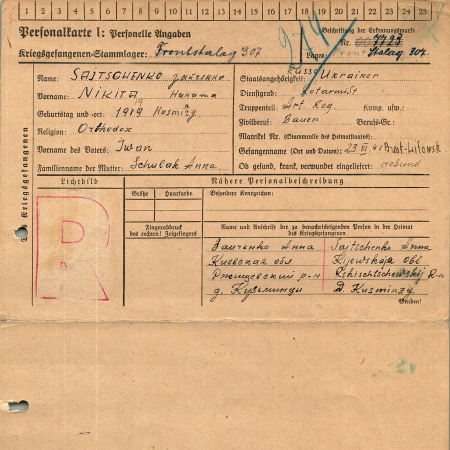 1 2 3 4 5 6 7 8 9 10 11 12 13 14 15 16 17 18 19 20 21 22 23 24 25
Personalkarte I: Personelle Angaben
Kriegsgefangenen-Stammlager: Frontstalag 307
Beschriftung der Erkennungsmarke
Nr. 7723
Lager: Frontstalag 307.
Des Kriegsgefangenen
Name: SAJTSCHENKO Зайченко
Vorname: NIKITA Никита
Geburtstag und -ort: 1919 Kosminzy
Religion: Orthodox
Vorname des Vaters: Iwan
Familienname der Mutter: Schulak Anna
Staatsangehörigkeit: Ukrainer
Dienstgrad: Rotarmist
Truppenteil: Art. Reg. Komp. usw.:
Zivilberuf: Bauer Berufs-Gr.:
Matrikel Nr. (Stammrolle des Heimatstaates):
Gefangennahme (Ort und Datum): 23 VI 41 Brest-Litowsk
Ob gesund, krank, verwundet eingeliefert: gesund
Lichtbild
Nähere Personalbeschreibung
Größe
Haarfarbe
Besondere Kennzeichen:
R
Fingerabdruck
des rechten! Zeigefingers
Name und Anschrift der zu benachrichtigenden Person in der Heimat
des Kriegsgefangenen
Зайченко Анна Sajtschenko Anna
Киевская обл Kijewskaja obl
Ржищевский р-н Rshischtschewskij R-n
д. Кузьминци D. Kusminzy.
Wenden!